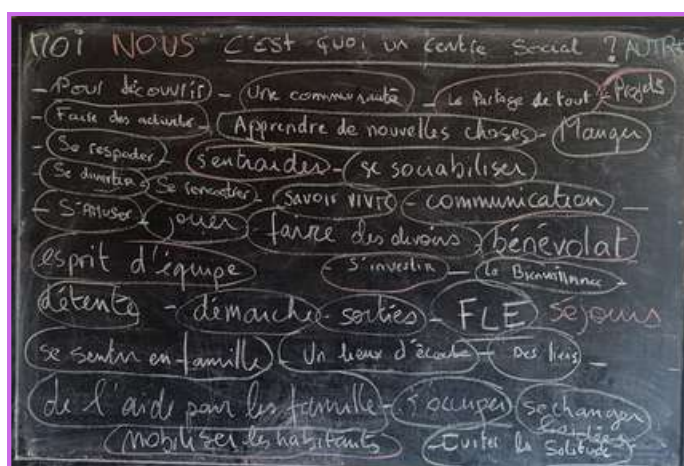 MOI NOUS C'EST QUOI UN centre Social ? AUTRE
- Pour découvrir - Une communauté - Le Partage de tout - Projets
- Faire des activités - Apprendre de nouvelles choses - Manger
- Se respecter - s'entraider - se sociabiliser
- Se divertir - Se rencontrer - SAVOIR VIVRE - communication -
- S'AMUSER - jouer - faire des devoirs - bénévolat
esprit d'équipe - s'investir - la Bienveillance -
détente - démarche - sorties - FLE séjours
se sentir en famille - Un lieux d'écoute - Des liens -
de l'aide pour les famille - s'occuper
mobiliser les habitants - Eviter la Solitude